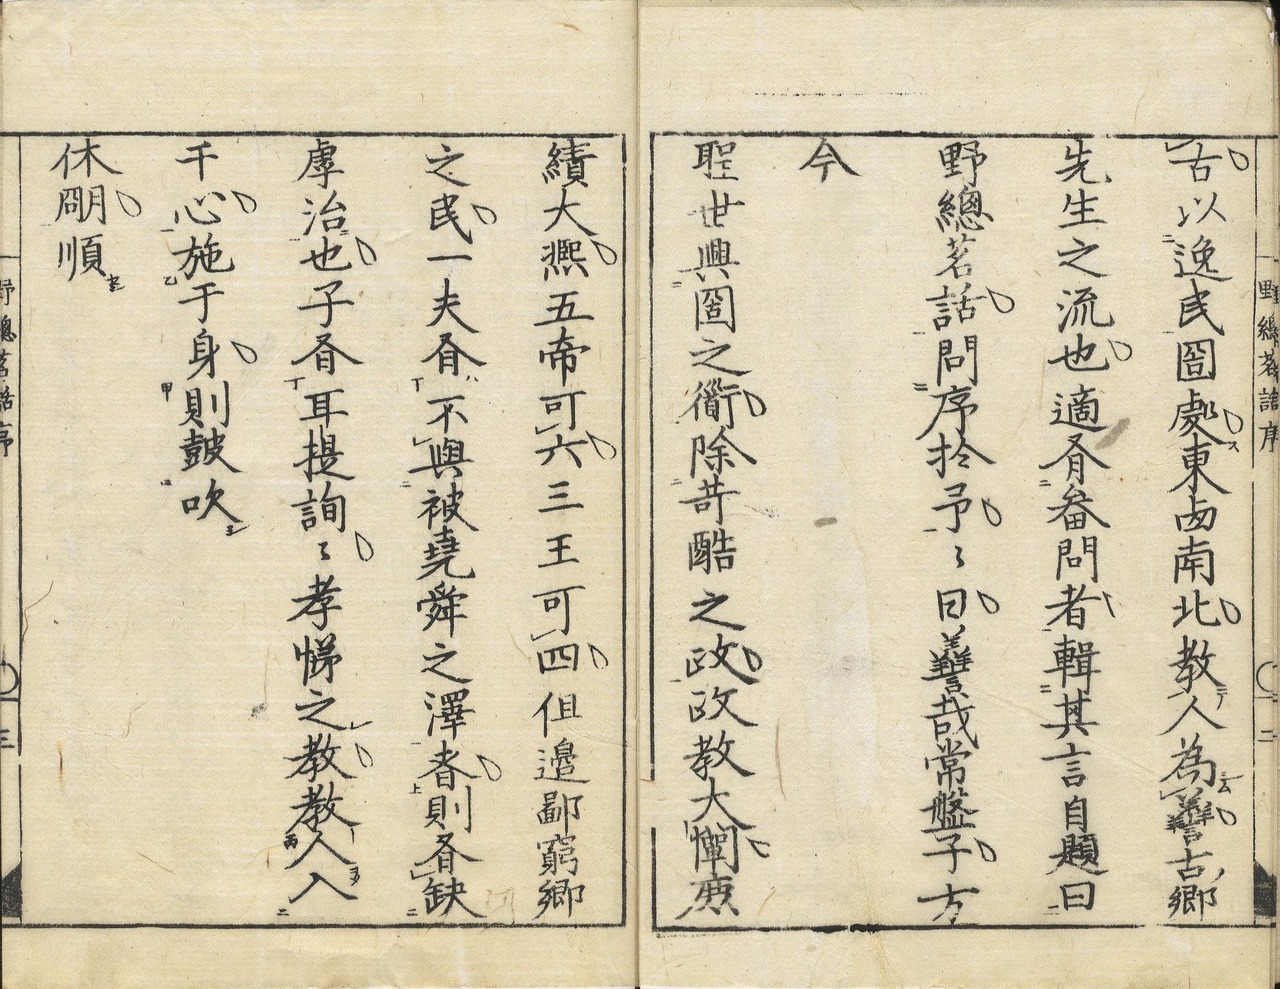 古以逸民囹處東西南北教人為譱古鄉
先生之流也適有叅問者輯其言自題曰
野總茗話問序於予〻曰譱哉常盤子方
今
聖世興圄之衢除苛酷之政政教大憚庶
績大熈五帝可六三王可四但邊鄙窮鄉
之民一夫有不與被堯舜之澤者則有缺
虖治也子有耳提詢〻孝悌之教教人入
于心施于身則鼓吹
休朙順
野總茗話序
二
野總茗話序
三